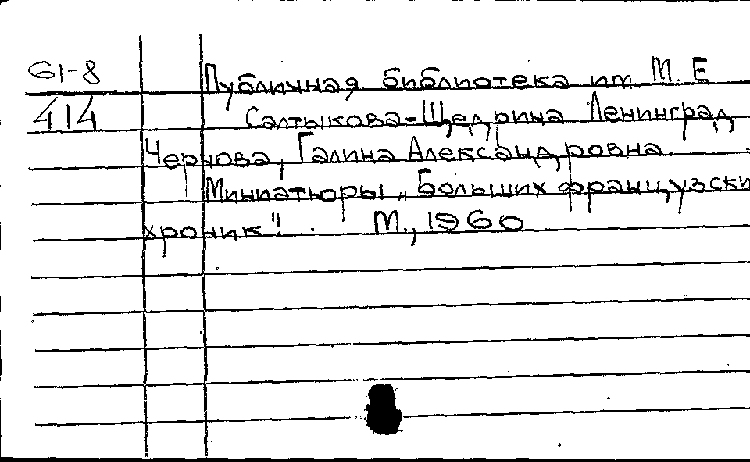 61-8 Публичная библиотека им М. Е
414 Салтыкова-Щедрина Ленинград
Чернова, Галина Александровна.
Миниатюры „Больших французски
хроник". М., 1960